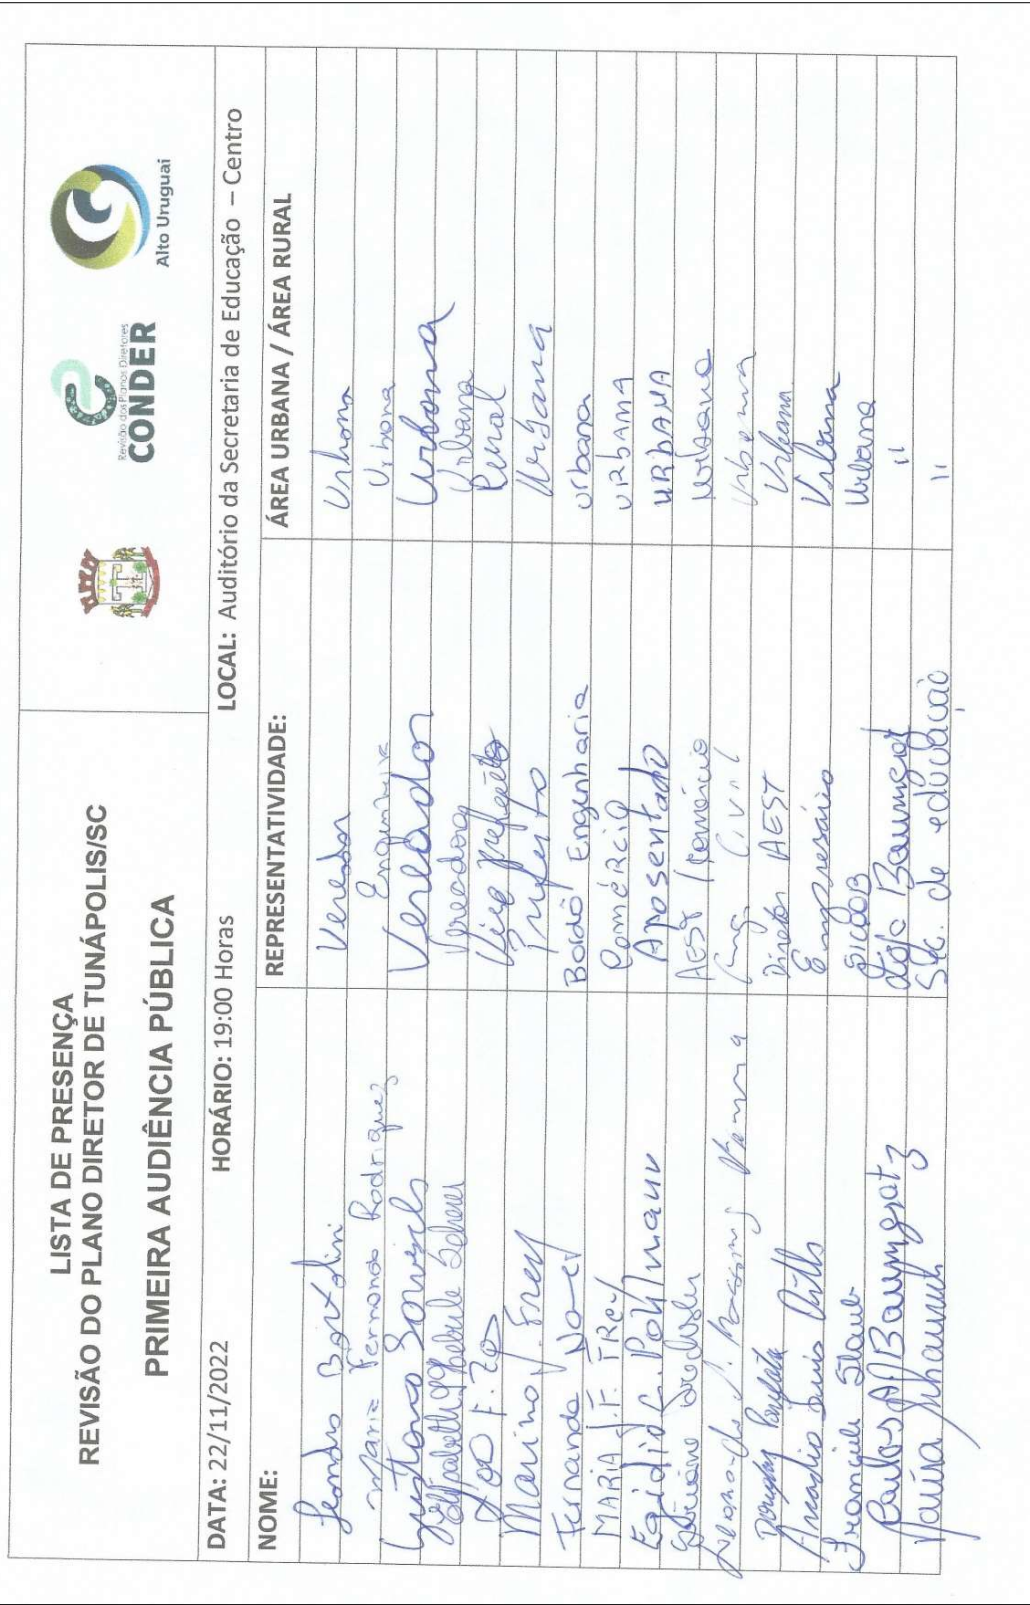 LISTA DE PRESENÇA
REVISÃO DO PLANO DIRETOR DE TUNÁPOLIS/SC
PRIMEIRA AUDIÊNCIA PÚBLICA
Revisão dos Planos Diretores
CONDER
Alto Uruguai
DATA: 22/11/2022 HORÁRIO: 19:00 Horas LOCAL: Auditório da Secretaria de Educação – Centro
NOME: REPRESENTATIVIDADE: ÁREA URBANA / ÁREA RURAL
Bortolini Vereador Urbana
Maria Fernanda Rodrigues Urbana
Gustavo Vereador Urbana
Scherer Vereadora Urbana
Vice prefeito Rural
Marino J. Frey Prefeito Urbana
Fernanda Bordô Engenharia Urbana
MARIA J.F. FREY Comércio URBAMA
Egidio L. Pohlmann Aposentado URBAMA
AEST / Comércio Urbano
Eng. Civil Urbama
Douglas Diretor AEST Urbana
Arcadio Luis Empresário Urbana
Franciele Staub SICOOB Urbana
Carlos A. Baumgratz "
Sec. de educação "